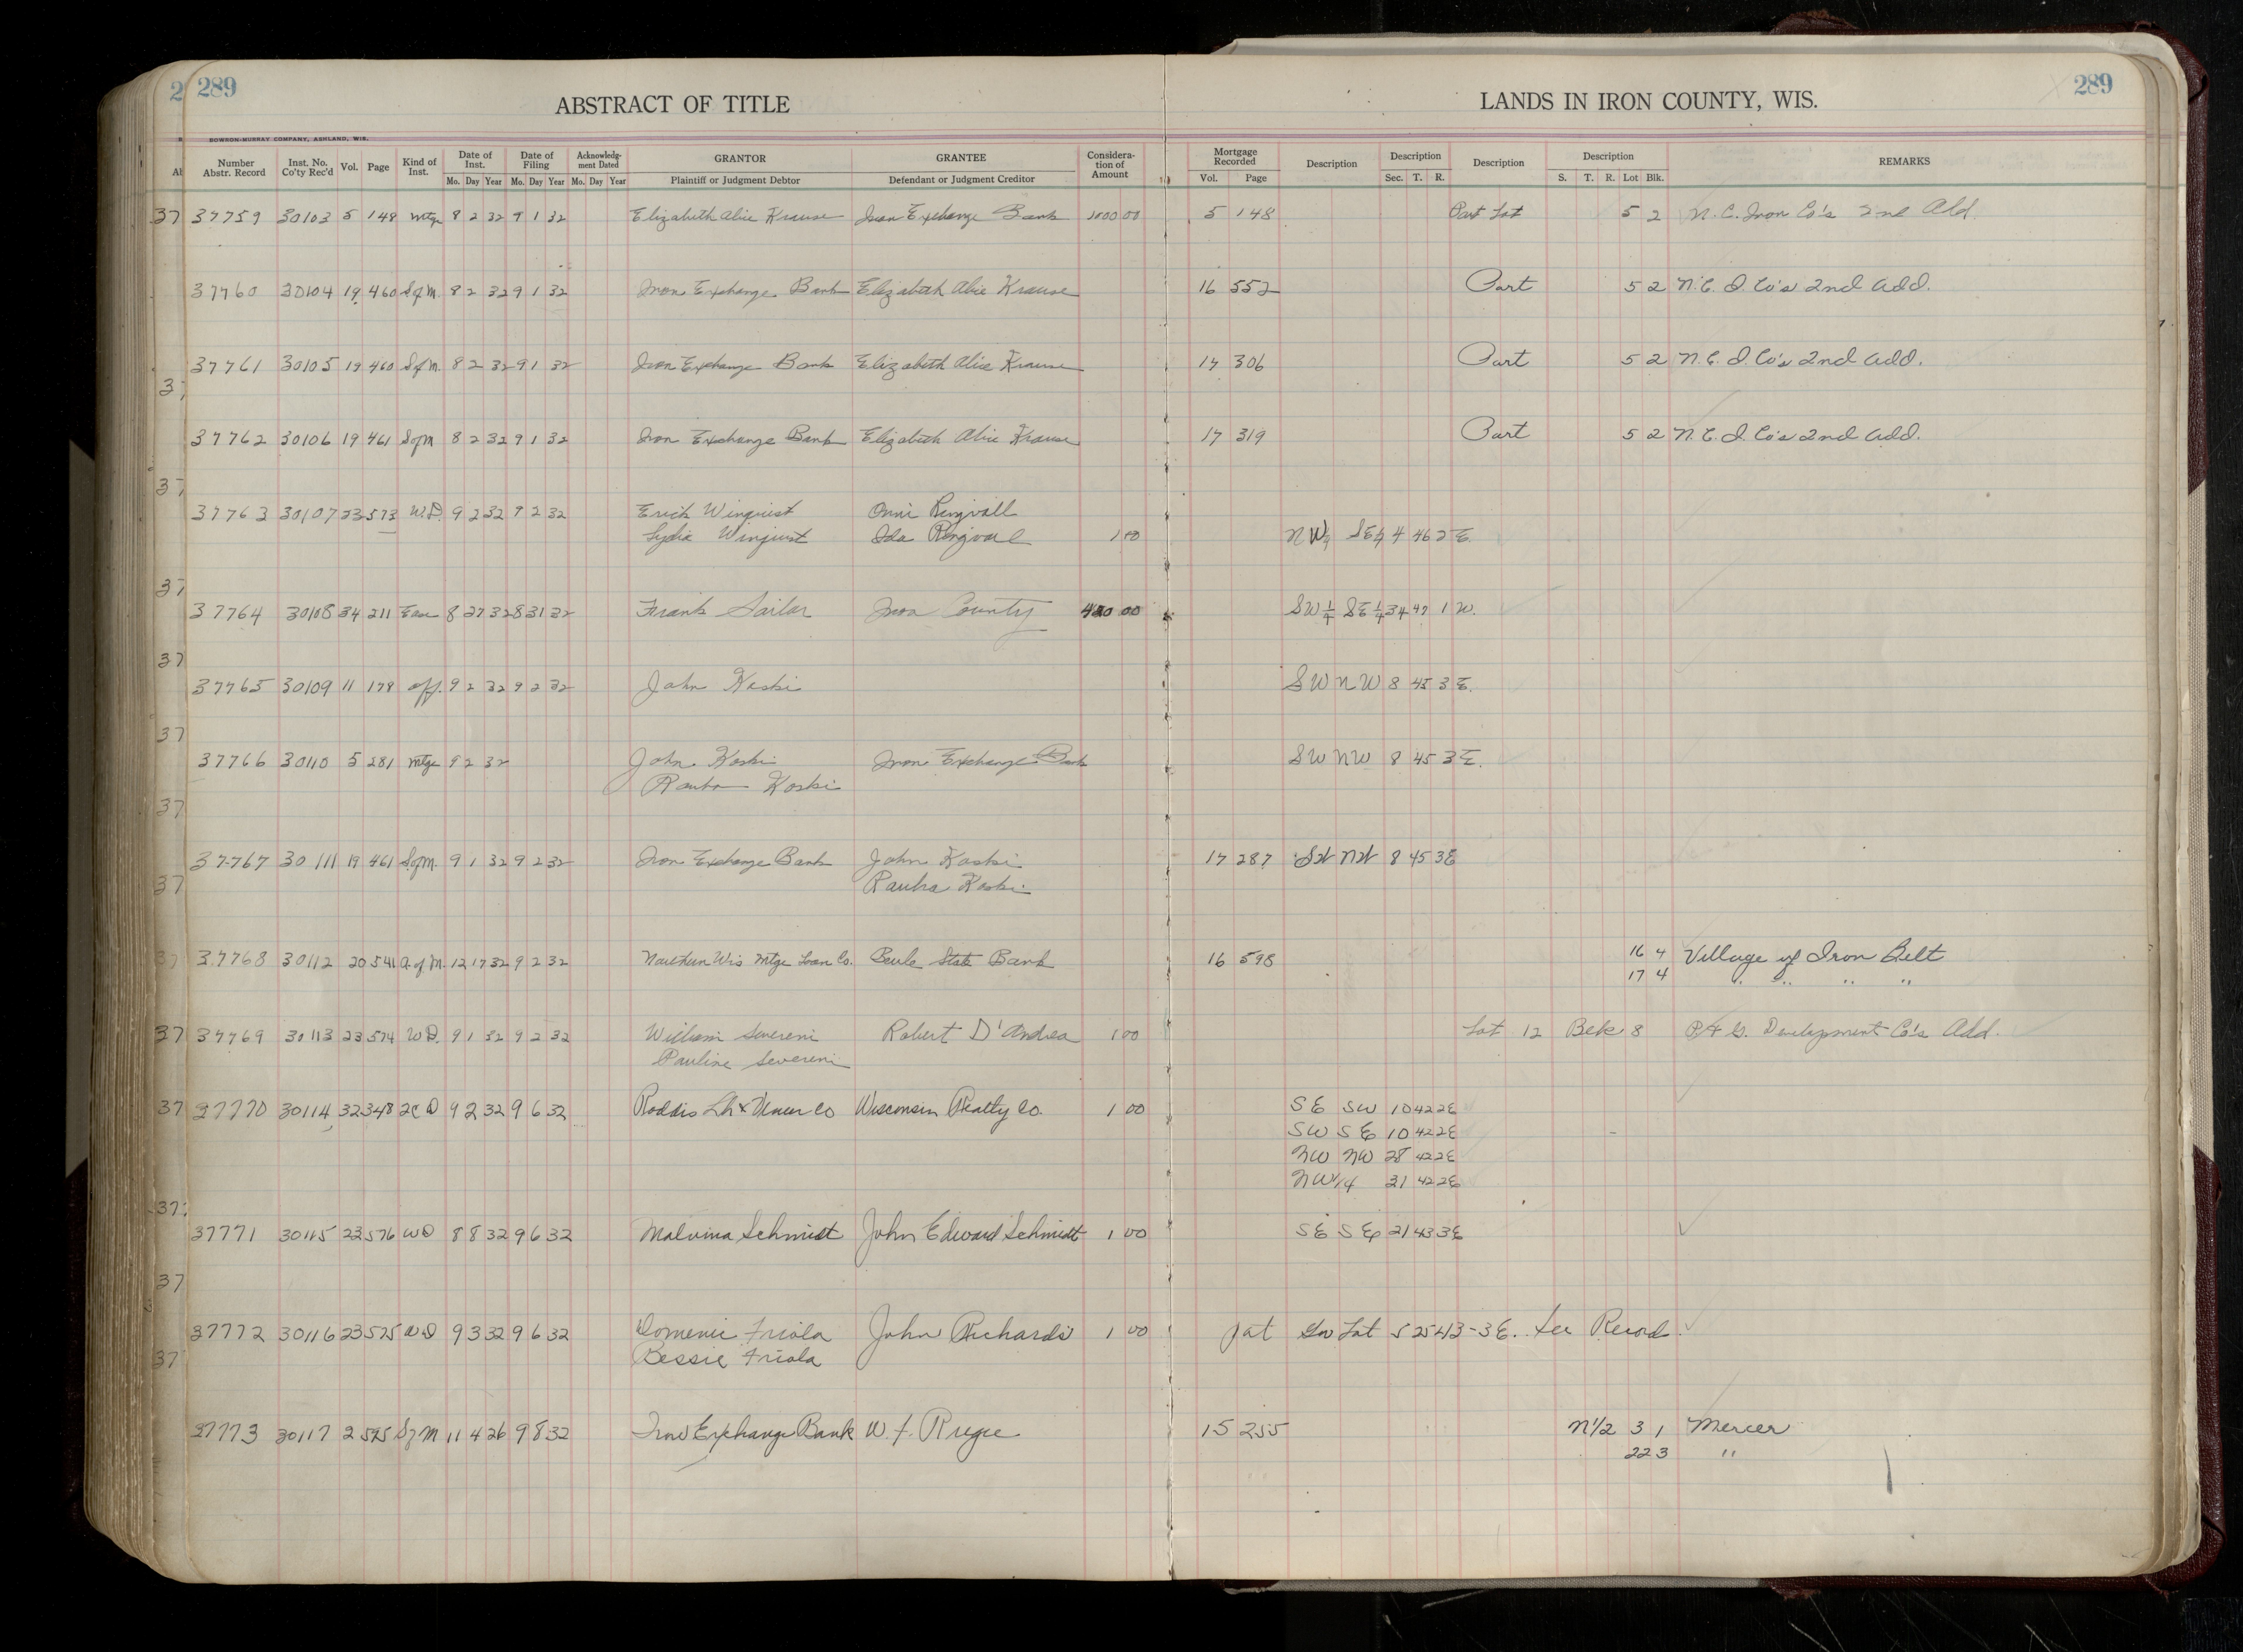 289
ABSTRACT OF TITLE
LANDS IN IRON COUNTY, WIS.
289
DOWSON-MURRAY COMPANY, ASHLAND, WIS.
Number Abstr. Record Inst. No. Co'ty Rec'd Vol. Page Kind of Inst. Date of Inst. Date of Filing Acknowledgment Dated GRANTOR GRANTEE Consideration of Amount Mortgage Recorded Description Description Description Description REMARKS
Mo. Day Year Mo. Day Year Mo. Day Year Plaintiff or Judgment Debtor Defendant or Judgment Creditor Vol. Page Sec. T. R. S. T. R. Lot Blk.
37759 30103 5 148 Mtge 8 2 32 9 1 32 Elizabeth Alice Krause Iron Exchange Bank 1000 00 5 148 Part Lot 5 2 N. C. Iron Co's 2nd Add.
37760 30104 19 460 S of M. 8 2 32 9 1 32 Iron Exchange Bank Elizabeth Alice Krause 16 552 Part 5 2 N. C. I. Co's 2nd Add.
37761 30105 19 460 S of M. 8 2 32 9 1 32 Iron Exchange Bank Elizabeth Alice Krause 17 306 Part 5 2 N. C. I. Co's 2nd Add.
37762 30106 19 461 S of M 8 2 32 9 1 32 Iron Exchange Bank Elizabeth Alice Krause 17 319 Part 5 2 N. C. I. Co's 2nd Add.
37763 30107 23 573 W.D. 9 2 32 9 2 32 Erick Winquist Onni Ringvall
Lydia Winquist Ida Ringvall 1 00 NW 1/4 SE 1/4 4 46 2 E.
37764 30108 34 211 Ease 8 27 32 8 31 32 Frank Sailar Iron County 420 00 SW 1/4 SE 1/4 34 47 1 W.
37765 30109 11 179 aff. 9 2 32 9 2 32 John Koski SW NW 8 45 3 E.
37766 30110 5 281 Mtge 9 2 32 John Koski Iron Exchange Bank SW NW 8 45 3 E.
Rauha Koski
37767 30111 19 461 S of M. 9 1 32 9 2 32 Iron Exchange Bank John Koski 17 287 SW NW 8 45 3 E
Rauha Koski
37768 30112 20 541 A. of M. 12 17 32 9 2 32 Northern Wis Mtge Loan Co. State Bank 16 598 16 4 Village of Iron Belt
17 4 " " " "
37769 30113 23 574 W D. 9 1 32 9 2 32 William Severeni Robert D'Andrea 1 00 Lot 12 Blk 8 P & G. Development Co's Add.
Pauline Severeni
37770 30114 32 348 2 C D 9 2 32 9 6 32 Roddis Lbr & Veneer Co Wisconsin Realty Co. 1 00 SE SW 10 42 2 E
SW SE 10 42 2 E
NW NW 28 42 2 E
NW 1/4 31 42 2 E
37771 30115 23 576 W D 8 8 32 9 6 32 Malvina Schmidt John Edward Schmidt 1 00 SE SE 21 43 3 E
37772 30116 23 575 W D 9 3 32 9 6 32 Domenic Friola John Richards 1 00 pat Gov Lot 5 25 43-3 E. See Record
Bessie Friola
37773 30117 2 575 S of M 11 4 26 9 8 32 Iron Exchange Bank W. F. 15 255 N 1/2 3 1 Mercer
22 3 "